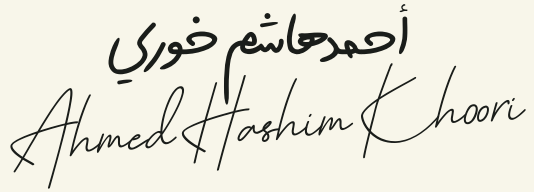 أحمد هاشم خوري
Ahmed Hashim Khoori